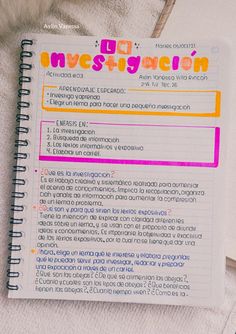 Aylin Vanessa
LA
Martes 05/01/21
investigación
Actividad #03
Aylin Vanessa Villa Rincón
APRENDIZAJE ESPERADO:
• Investiga y aprenda
• Elegir un tema para hacer una pequeña investigación
ENFASIS EN:
1. La investigación
2. Búsqueda de información
3. Los textos informativos y expositivo
4. Elaborar un cartel
¿Que es la investigación?
Es el trabajo creativo y sistemático realizado para aumentar
el acervo de conocimientos. Implica la recopilación, organiza-
ción y análisis de información para aumentar la comprensión
de un tema o problema.
¿Que son y para qué sirven los textos expositivos?
Tiene la intención de explicar con claridad diferentes
ideas sobre un tema, y se usan con el propósito de difundir
ideas y conocimientos. Es importante la objetividad y exactitud
de los textos expositivos, por lo cual no se tiene que dar una
opinión.
Ahora, elige un tema que te interese y elabora preguntas
que te puedan servir para investigar, redactar y preparar
una exposición a través de un cartel.
¿Qué son las abejas? ¿De qué se alimentan las abejas?
¿Cuáles y cuáles son los tipos de abejas? ¿Qué beneficios
tienen las abejas? ¿Cuánto tiempo viven? ¿Cómo es la